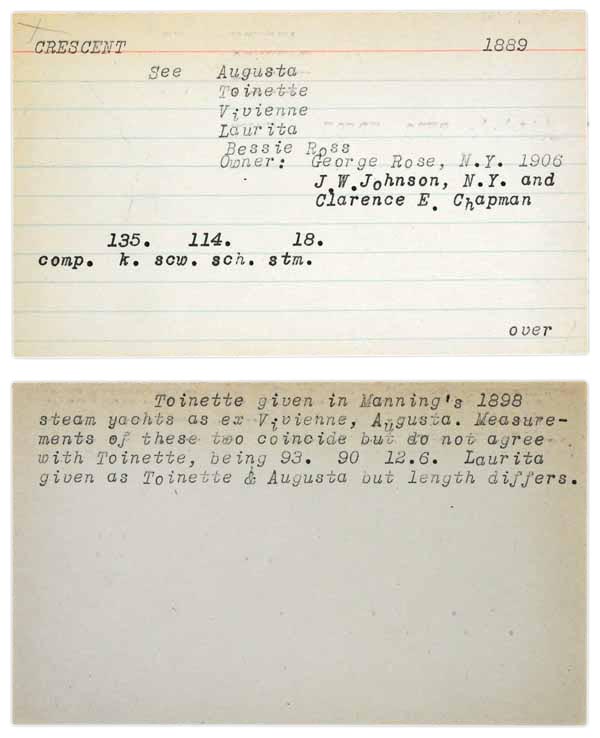 CRESCENT 1889
See Augusta
Toinette
Vivienne
Laurita
Bessie Ross
Owner: George Rose, N.Y. 1906
J.W.Johnson, N.Y. and
Clarence E. Chapman
135. 114. 18.
comp. k. scw. sch. stm.
over
Toinette given in Manning's 1898
steam yachts as ex Vivienne, Augusta. Measure-
ments of these two coincide but do not agree
with Toinette, being 93. 90 12.6. Laurita
given as Toinette & Augusta but length differs.